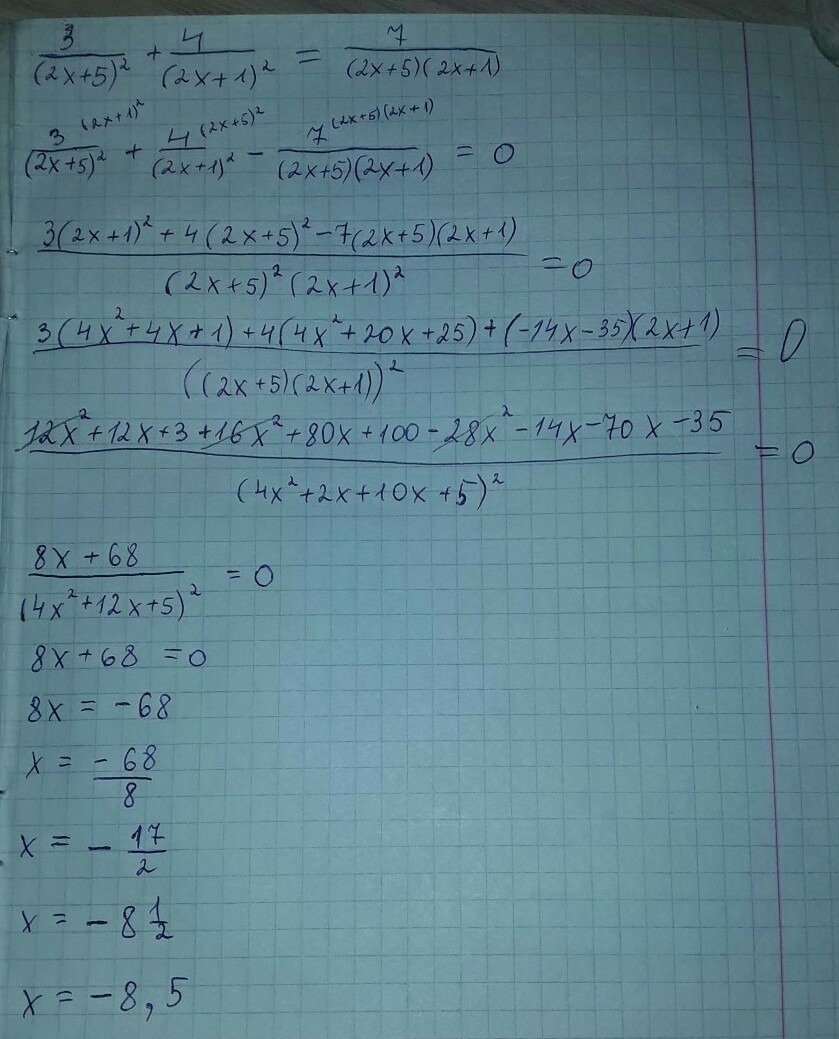 3/(2x+5)² + 4/(2x+1)² = 7/((2x+5)(2x+1))
3^(2x+1)²/(2x+5)² + 4^(2x+5)²/(2x+1)² - 7^(2x+5)(2x+1)/((2x+5)(2x+1)) = 0
(3(2x+1)² + 4(2x+5)² - 7(2x+5)(2x+1))/((2x+5)²(2x+1)²) = 0
(3(4x²+4x+1)+4(4x²+20x+25)+(-14x-35)(2x+1))/((2x+5)(2x+1))² = 0
(12x²+12x+3+16x²+80x+100-28x²-14x-70x-35)/(4x²+2x+10x+5)² = 0
(8x+68)/(4x²+12x+5)² = 0
8x+68 = 0
8x = -68
x = -68/8
x = -17/2
x = -8 1/2
x = -8,5